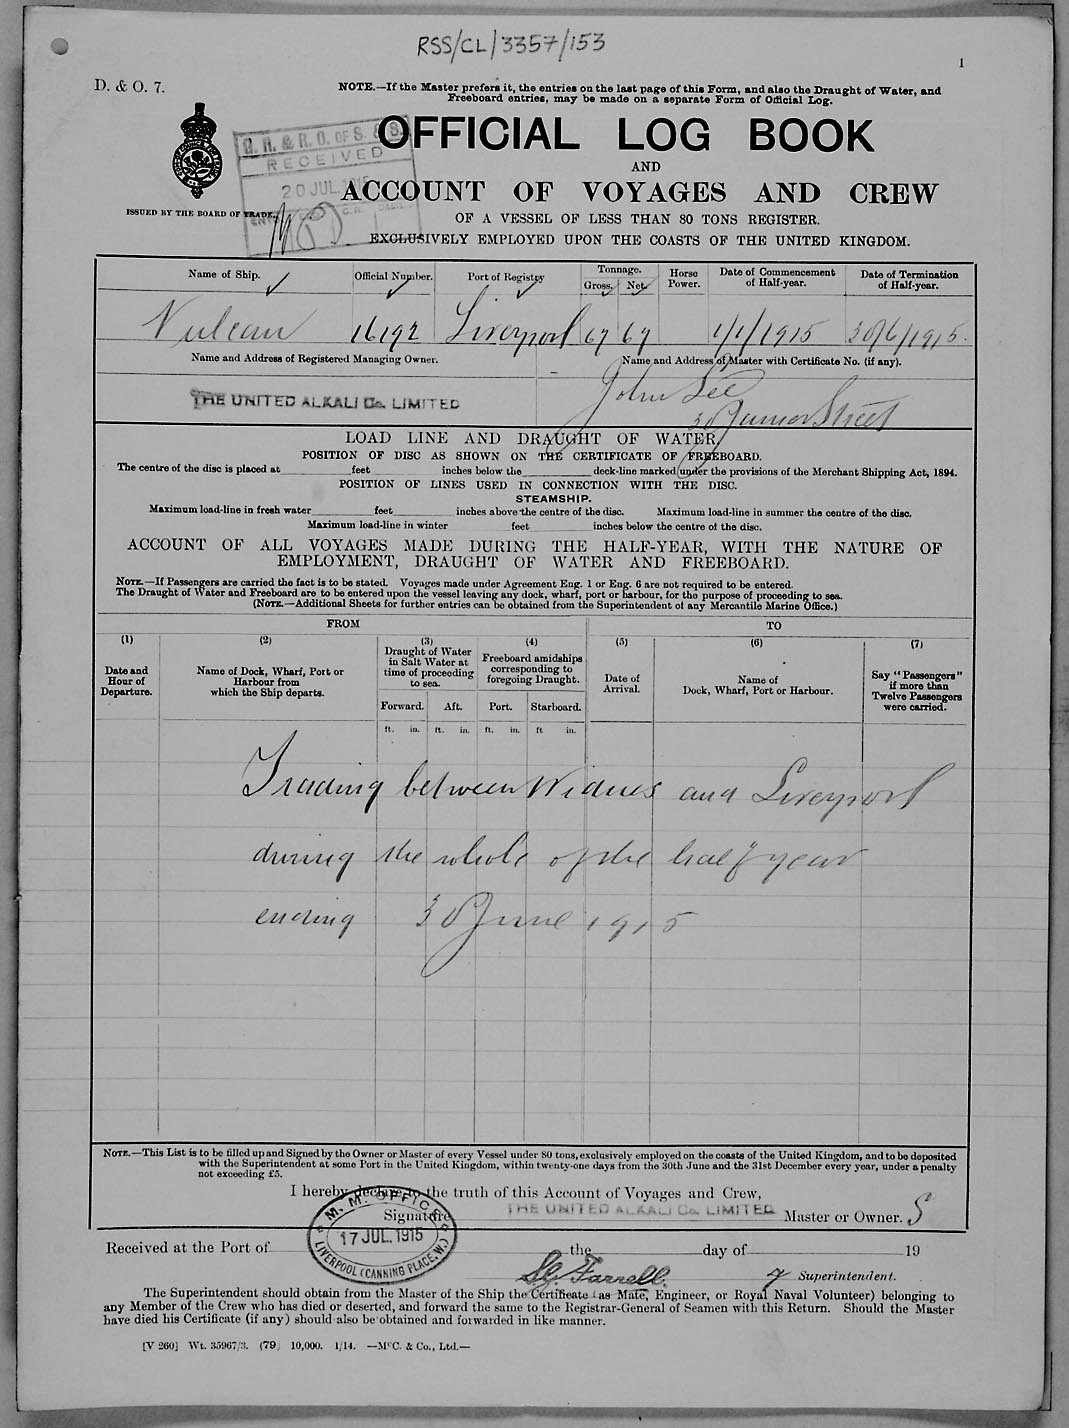 RSS/CL/3357/153
1
D. & O. 7.
NOTE.—If the Master prefers it, the entries on the last page of this Form, and also the Draught of Water, and
Freeboard entries, may be made on a separate Form of Official Log.
OFFICIAL LOG BOOK
AND
ACCOUNT OF VOYAGES AND CREW
OF A VESSEL OF LESS THAN 80 TONS REGISTER.
EXCLUSIVELY EMPLOYED UPON THE COASTS OF THE UNITED KINGDOM.
ISSUED BY THE BOARD OF TRADE.
& R. O. OF S. & S.
RECEIVED
20 JUL 1915
Name of Ship. Official Number. Port of Registry Tonnage. Horse Power. Date of Commencement of Half-year. Date of Termination of Half-year.
Gross. Net.
Vulcan 16192 Liverpool 67 67 1/1/1915 30/6/1915.
Name and Address of Registered Managing Owner. Name and Address of Master with Certificate No. (if any).
THE UNITED ALKALI Co. LIMITED
John Lee
30 Junior Street
LOAD LINE AND DRAUGHT OF WATER
POSITION OF DISC AS SHOWN ON THE CERTIFICATE OF FREEBOARD.
The centre of the disc is placed at feet inches below the deck-line marked under the provisions of the Merchant Shipping Act, 1894.
POSITION OF LINES USED IN CONNECTION WITH THE DISC.
STEAMSHIP.
Maximum load-line in fresh water feet inches above the centre of the disc. Maximum load-line in summer the centre of the disc.
Maximum load-line in winter feet inches below the centre of the disc.
ACCOUNT OF ALL VOYAGES MADE DURING THE HALF-YEAR, WITH THE NATURE OF
EMPLOYMENT, DRAUGHT OF WATER AND FREEBOARD.
NOTE.—If Passengers are carried the fact is to be stated. Voyages made under Agreement Eng. 1 or Eng. 6 are not required to be entered.
The Draught of Water and Freeboard are to be entered upon the vessel leaving any dock, wharf, port or harbour, for the purpose of proceeding to sea.
(NOTE.—Additional Sheets for further entries can be obtained from the Superintendent of any Mercantile Marine Office.)
FROM TO
(1) (2) (3) (4) (5) (6) (7)
Date and
Hour of
Departure.
Name of Dock, Wharf, Port or
Harbour from
which the Ship departs.
Draught of Water
in Salt Water at
time of proceeding
to sea.
Freeboard amidships
corresponding to
foregoing Draught.
Date of
Arrival.
Name of
Dock, Wharf, Port or Harbour.
Say "Passengers"
if more than
Twelve Passengers
were carried.
Forward. Aft. Port. Starboard.
ft. in. ft. in. ft. in. ft in.
Trading between Widnes and Liverpool
during the whole of the half year
ending 30 June 1915
NOTE.—This List is to be filled up and Signed by the Owner or Master of every Vessel under 80 tons, exclusively employed on the coasts of the United Kingdom, and to be deposited
with the Superintendent at some Port in the United Kingdom, within twenty-one days from the 30th June and the 31st December every year, under a penalty
not exceeding £5.
I hereby declare to the truth of this Account of Voyages and Crew,
Signature THE UNITED ALKALI Co. LIMITED Master or Owner.
M. M. OFFICE
17 JUL. 1915
LIVERPOOL (CANNING PLACE, W.)
Received at the Port of the day of 19
S.G. Farrell. Superintendent.
The Superintendent should obtain from the Master of the Ship the Certificate (as Mate, Engineer, or Royal Naval Volunteer) belonging to
any Member of the Crew who has died or deserted, and forward the same to the Registrar-General of Seamen with this Return. Should the Master
have died his Certificate (if any) should also be obtained and forwarded in like manner.
[V 260] Wt. 35967/3. (79) 10,000. 1/14. —McC. & Co., Ltd.—